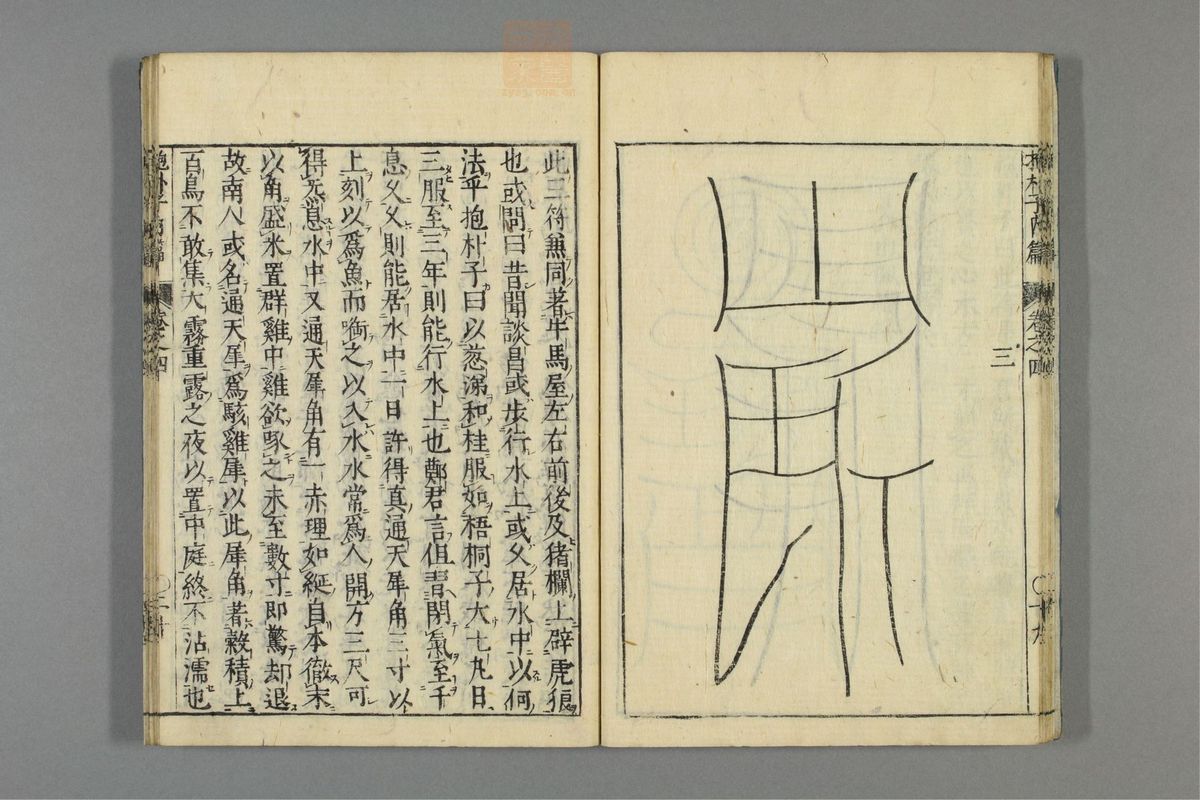 卷之四
三
此三符兼同著牛馬屋左右前後及猪欄上辟虎狼
也或問曰昔聞談昌或步行水上或久居水中以何
法乎抱朴子曰以葱涕和桂服如梧桐子大七丸日
三服至三年則能行水上也鄭君言但習閉氣至千
息久久則能居水中一日許得真通天犀角三寸以
上刻以爲魚而啣之以入水水常爲人開方三尺可
得炁息水中又通天犀角有一赤理如綖自本徹末
以角盛米置群雞中雞欲啄之未至數寸即驚却退
故南人或名通天犀爲駭雞犀以此犀角著穀積上
百鳥不敢集大霧重露之夜以置中庭終不沾濡也